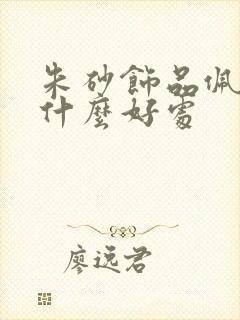 朱砂飾品佩
什麼好處
廖远君